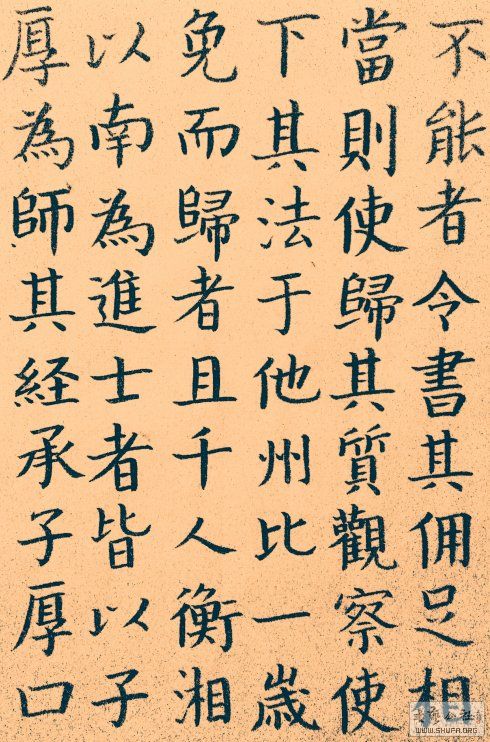 不能者令書其佣足相
當則使歸其質觀察使
下其法于他州比一歲
免而歸者且千人衡湘
以南為進士者皆以子
厚為師其経承子厚口
WWW.SHUFA.ORG